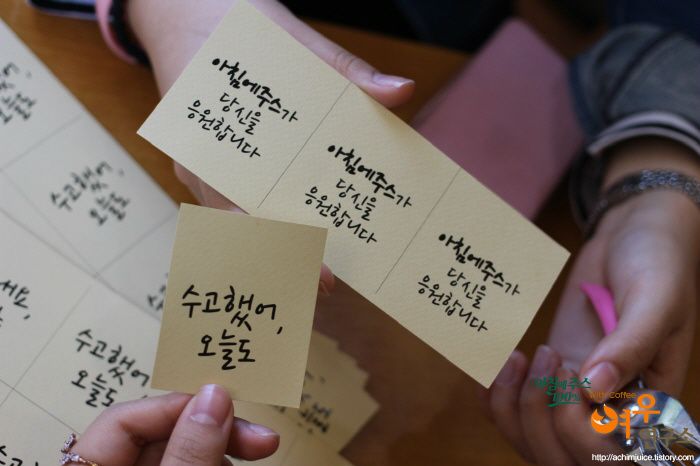 아침에주스가
당신을
응원합니다
아침에주스가
당신을
응원합니다
아침에주스가
당신을
응원합니다
수고했어,
오늘도
수고했어,
오늘도
수고했어,
오늘도
With Coffee
http://achimjuice.tistory.com